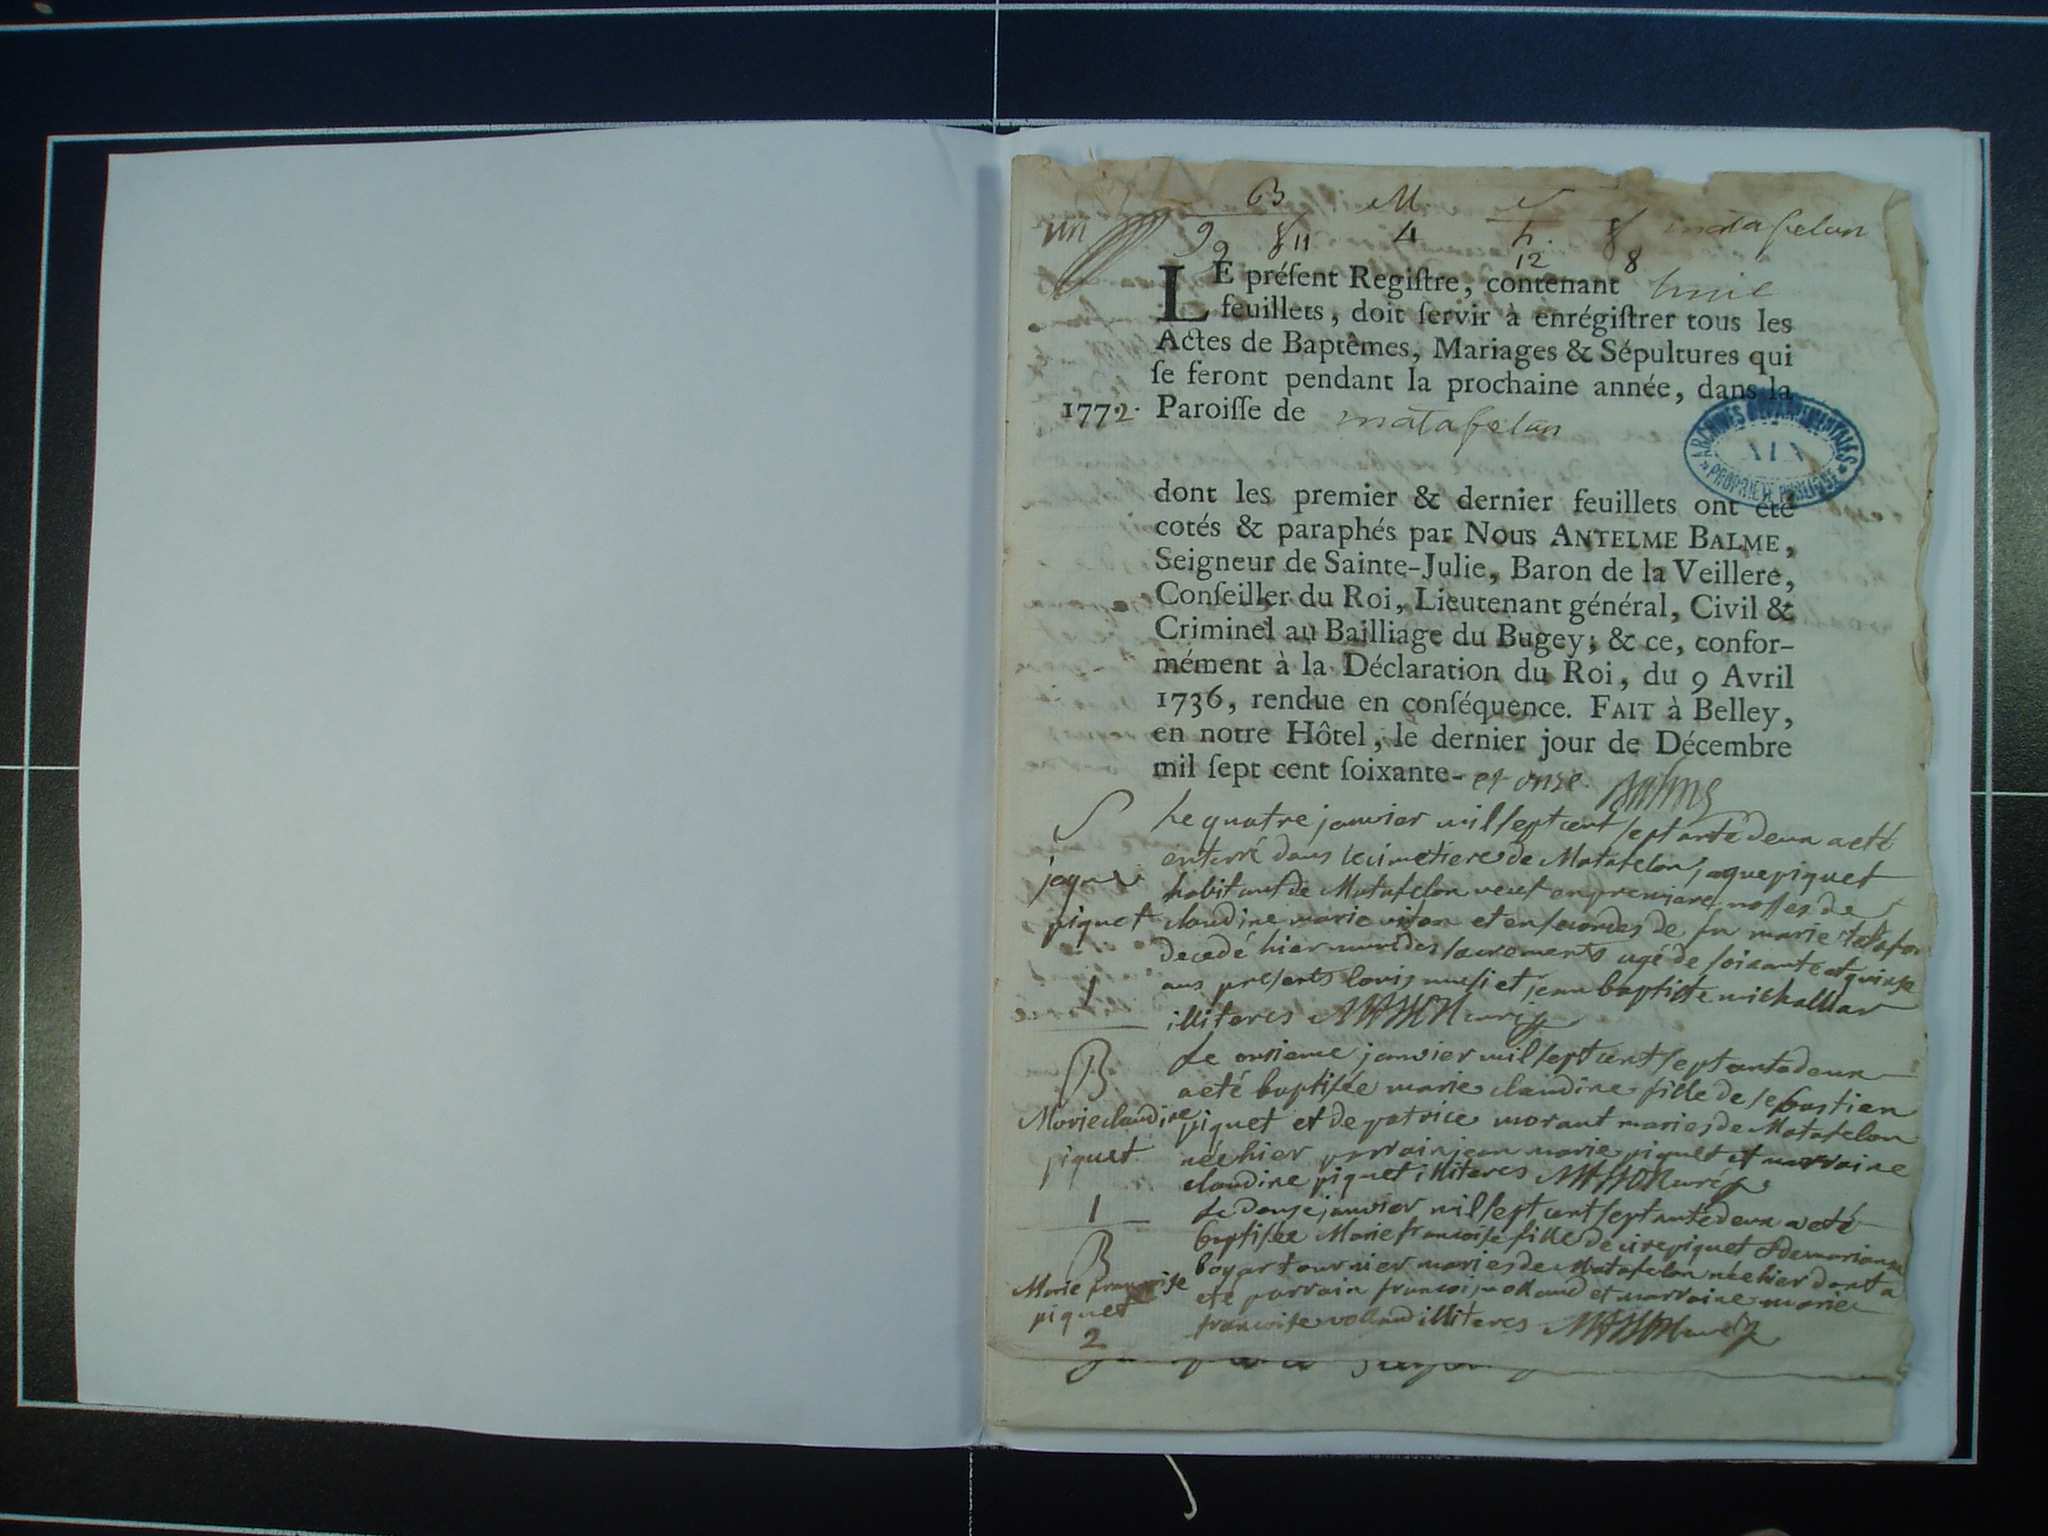 B M S
9 9 8 11 4 h. 8 matafelon
12 8
LE préſent Regiſtre, contenant huit
feuillets, doit ſervir à enrégiſtrer tous les
Actes de Baptêmes, Mariages & Sépultures qui
ſe feront pendant la prochaine année, dans la
1772. Paroiſſe de matafelon
ARCHIVES DÉPARTEMENTALES
AIN
PROPRIÉTÉ PUBLIQUE
dont les premier & dernier feuillets ont été
cotés & paraphés par NOUS ANTELME BALME,
Seigneur de Sainte-Julie, Baron de la Veillere,
Conſeiller du Roi, Lieutenant général, Civil &
Criminel au Bailliage du Bugey; & ce, confor-
mément à la Déclaration du Roi, du 9 Avril
1736, rendue en conſéquence. FAIT à Belley,
en notre Hôtel, le dernier jour de Décembre
mil ſept cent ſoixante- et onze. Balme
S
jaque
piquet
1
Le quatre janvier mil sept cent septante deux a eté
enterré dans le cimetiere de Matafelon jaque piquet
habitant de Matafelon veuf en premiere nosses de
claudine marie et en secondes de fu marie
decedé hier muni des sacrements agé de soixante et quinze
ans presents louis et jean baptiste
illiteres MASSON curé
B
Marie claudine
piquet
1
Le onzieme janvier mil sept cent septante deux
a eté baptisée marie claudine fille de sebastien
piquet et de patrice morant mariés de Matafelon
née hier parrain jean marie piquet et marraine
claudine piquet illiteres MASSON curé
B
Marie françoise
piquet
2
Le douze janvier mil sept cent septante deux a eté
baptisée Marie francoise fille de cire piquet et de marianne
boyar tournier mariés de Matafelon née hier dont a
eté parrain francois volland et marraine marie
francoise volland illiteres MASSON curé